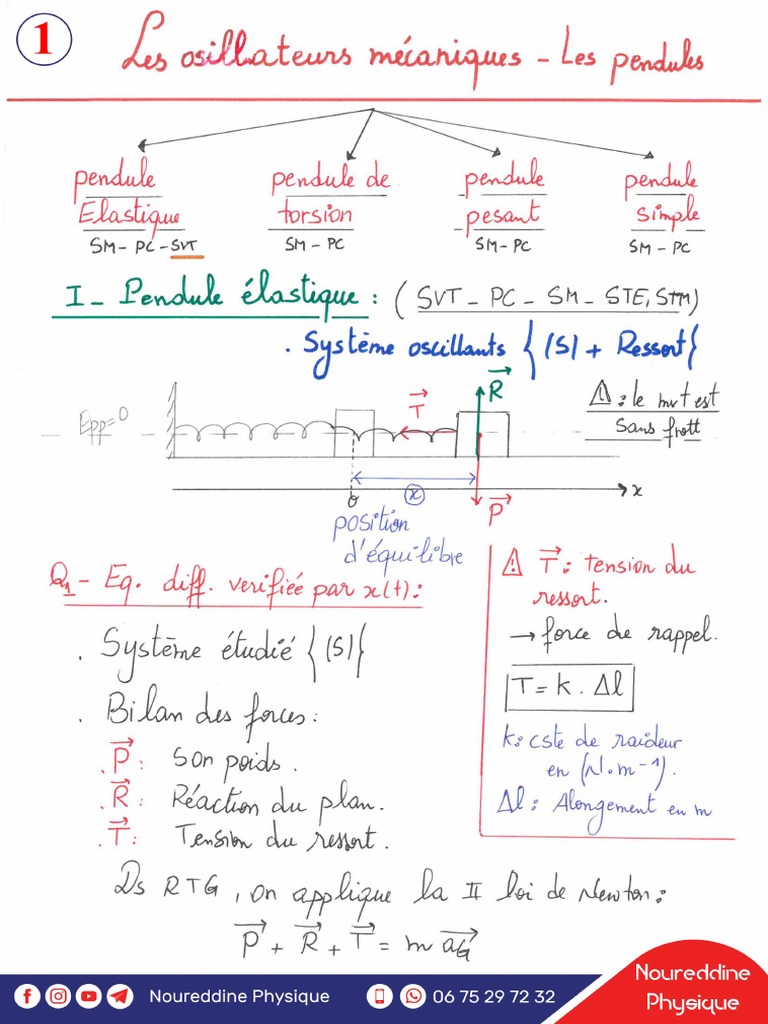 1
Les osillateurs mécaniques - Les pendules
pendule Elastique
SM - PC - SVT
pendule de torsion
SM - PC
pendule pesant
SM - PC
pendule simple
SM - PC
I - Pendule élastique : ( SVT - PC - SM - STE, STM)
. Système oscillants {(S) + Ressort}
Epp=0
T
R
⚠ : le mvt est
Sans frott
o
x
x
P
position
d'équilibre
Q1 - Eq. diff. verifiée par x(t) :
. Système étudié {(S)}
. Bilan des forces :
. P : Son poids .
. R : Réaction du plan .
. T : Tension du ressort .
⚠ T : tension du
ressort.
→ force de rappel.
T = k . Δl
k : cste de raideur
en (N.m⁻¹).
Δl : Alongement en m
Ds RTG , on applique la II loi de Newton :
P + R + T = m aG
Noureddine Physique
06 75 29 72 32
Noureddine
Physique